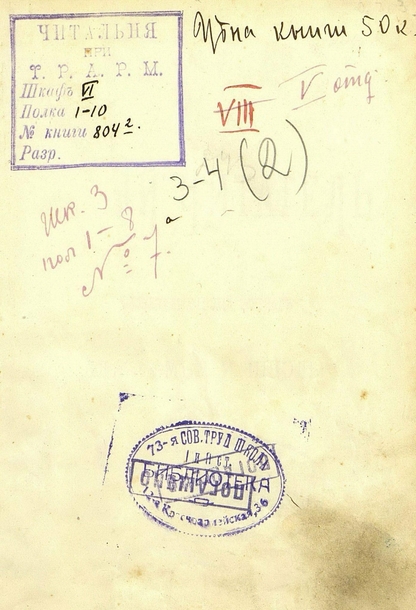 ЧИТАЛЬНЯ
ПРИ
Т. Р. А. Р. М.
Шкафъ VI
Полка 1-10
№ книги 804².
Разр.
Цѣна книги 50 к.
VIII
V отд
3-4 (2)
шк. 3
пол 1-8
№ 7
73-я СОВ. ТРУД ШКОЛА
БИБЛИОТЕКА
Красноармейская, 36